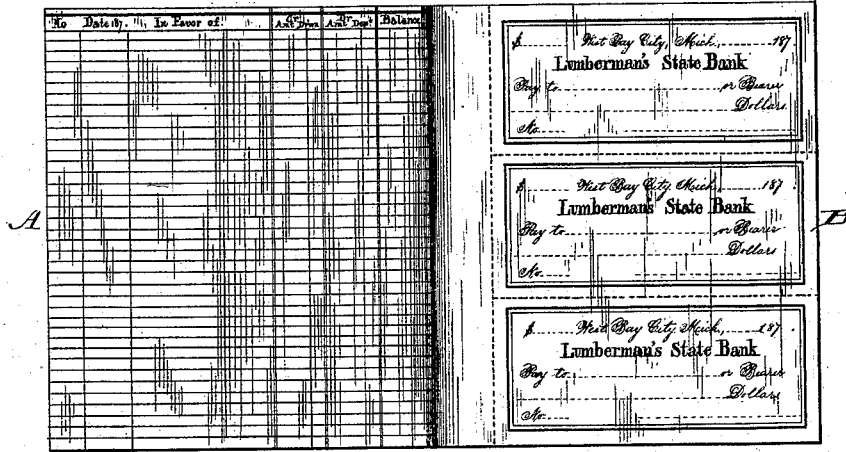 No Date 187. In Favor of Amt Drwn Amt Dep't Balance
A
$ West Bay City, Mich., 187
Lumberman's State Bank
Pay to or Bearer
Dollars
No.
$ West Bay City Mich., 187
Lumberman's State Bank
Pay to or Bearer
Dollars
No.
B
$ West Bay City, Mich., 187.
Lumberman's State Bank
Pay to or Bearer
Dollars
No.